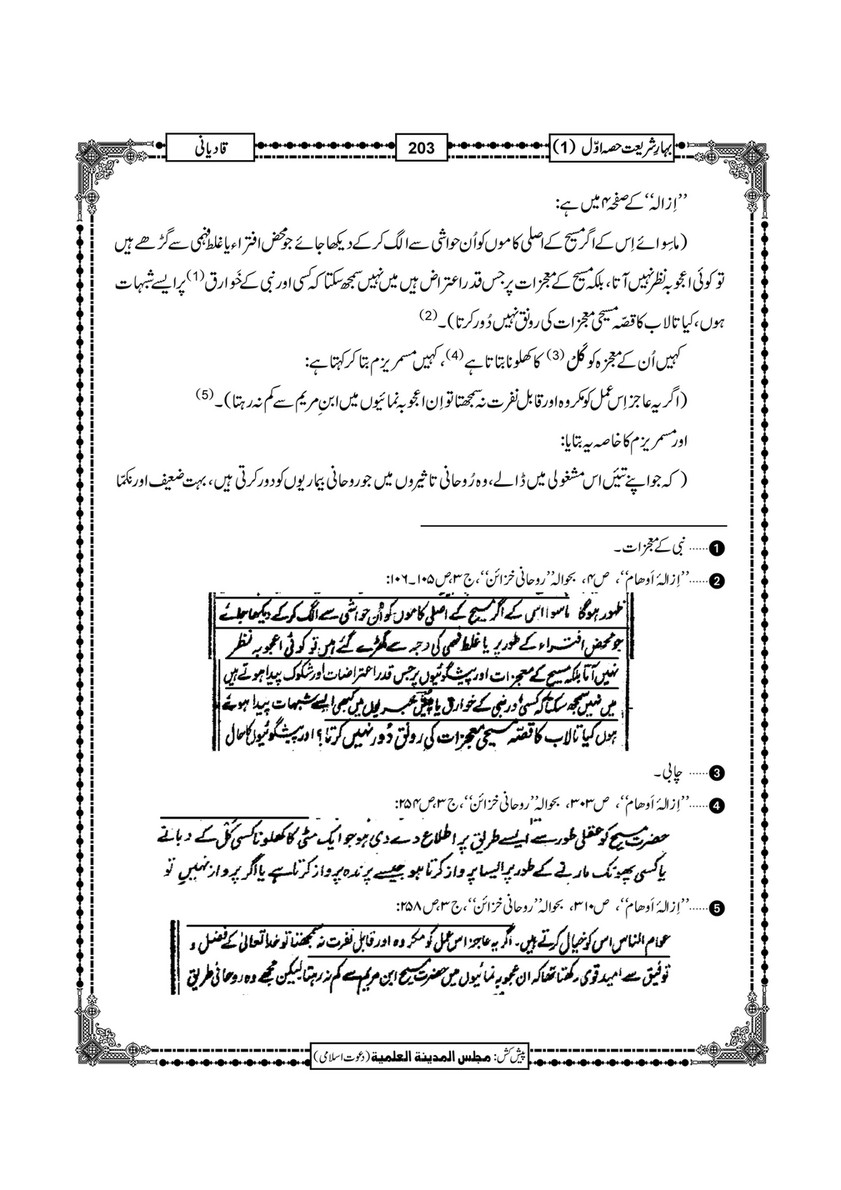 بہارِ شریعت حصہ اوّل (1)
203
قادیانی
’’اِزالہ‘‘ کے صفحہ ۴ میں ہے:
(ماسوائے اِس کے اگر مسیح کے اصلی کاموں کو اُن حواشی سے الگ کرکے دیکھا جائے جو محض افتراء یا غلط فہمی سے گڑھے ہیں
تو کوئی اعجوبہ نظر نہیں آتا، بلکہ مسیح کے معجزات پر جس قدر اعتراض ہیں میں نہیں سمجھ سکتا کہ کسی اور نبی کے خَوارق (1) پر ایسے شبہات
ہوں، کیا تالاب کا قصّہ مسیحی معجزات کی رونق نہیں دُور کرتا)۔ (2)
کہیں اُن کے معجزہ کو کَلْ (3) کا کھلونا بتاتا ہے (4)، کہیں مسمریزم بتا کر کہتا ہے:
(اگر یہ عاجز اِس عمل کو مکروہ اور قابلِ نفرت نہ سمجھتا تو اِن اعجوبہ نمائیوں میں ابنِ مریم سے کم نہ رہتا)۔ (5)
اور مسمریزم کا خاصہ یہ بتایا:
( کہ جو اپنے تئیں اس مشغولی میں ڈالے، وہ رُوحانی تاثیروں میں جو روحانی بیماریوں کو دور کرتی ہیں، بہت ضعیف اور نکمّا
1 ...... نبی کے معجزات۔
2 ...... ’’اِزالۂ اَوھام‘‘، ص۴، بحوالہ ’’روحانی خزائن‘‘، ج۳، ص۱۰۵۔۱۰۶:
ظہور ہوگا ماسوا اس کے اگر مسیح کے اصلی کاموں کو اُن حواشی سے الگ کرکے دیکھا جائے
جو محض افتراء کے طور پر یا غلط فہمی کی وجہ سے گھڑے گئے ہیں تو کوئی اعجوبہ نظر
نہیں آتا بلکہ مسیح کے معجزات اور پیشگوئیوں پر جس قدر اعتراضات اور شکوک پیدا ہوتے ہیں
میں نہیں سمجھ سکتا کہ کسی اور نبی کے خوارق یا پیش خبریوں میں کبھی ایسے شبہات پیدا ہوئے
ہوں کیا تالاب کا قصّہ مسیحی معجزات کی رونق دُور نہیں کرتا؟ اور پیشگوئیوں کا حال
3 ...... چابی۔
4 ...... ’’اِزالۂ اَوھام‘‘، ص۳۰۳، بحوالہ ’’روحانی خزائن‘‘، ج۳، ص۲۵۴:
حضرت مسیح کو عقلی طور سے ایسے طریق پر اطلاع دے دی ہو جو ایک مٹی کا کھلونا کسی کَل کے دبانے
یا کسی پھونک مارنے کے طور پر ایسا پرواز کرتا ہو جیسے پرندہ پرواز کرتا ہے یا اگر پرواز نہیں تو
5 ...... ’’اِزالۂ اَوھام‘‘، ص۳۱۰، بحوالہ ’’روحانی خزائن‘‘، ج۳، ص۲۵۸:
عوام الناس اس کو خیال کرتے ہیں۔ اگر یہ عاجز اس عمل کو مکروہ اور قابل نفرت نہ سمجھتا تو خدا تعالیٰ کے فضل و
توفیق سے امید قوی رکھتا تھا کہ ان عجوبہ نمائیوں میں حضرت مسیح ابن مریم سے کم نہ رہتا لیکن مجھے وہ روحانی طریق
پیش کش: مجلس المدینۃ العلمیۃ (دعوتِ اسلامی)